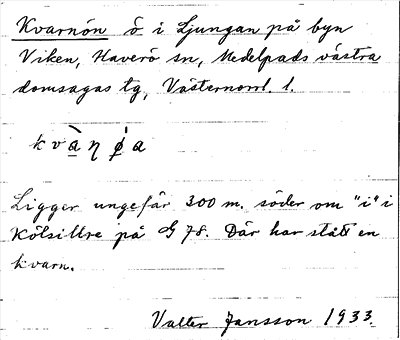 Kvarnön ö i Ljungan på byn
Viken, Haverö sn, Medelpads västra
domsagas tg, Västernorrl. l.
Ligger ungefär 300 m. söder om "i" i
Kölsillre på G 78. Där har stått en
kvarn.
Valter Jansson 1933.